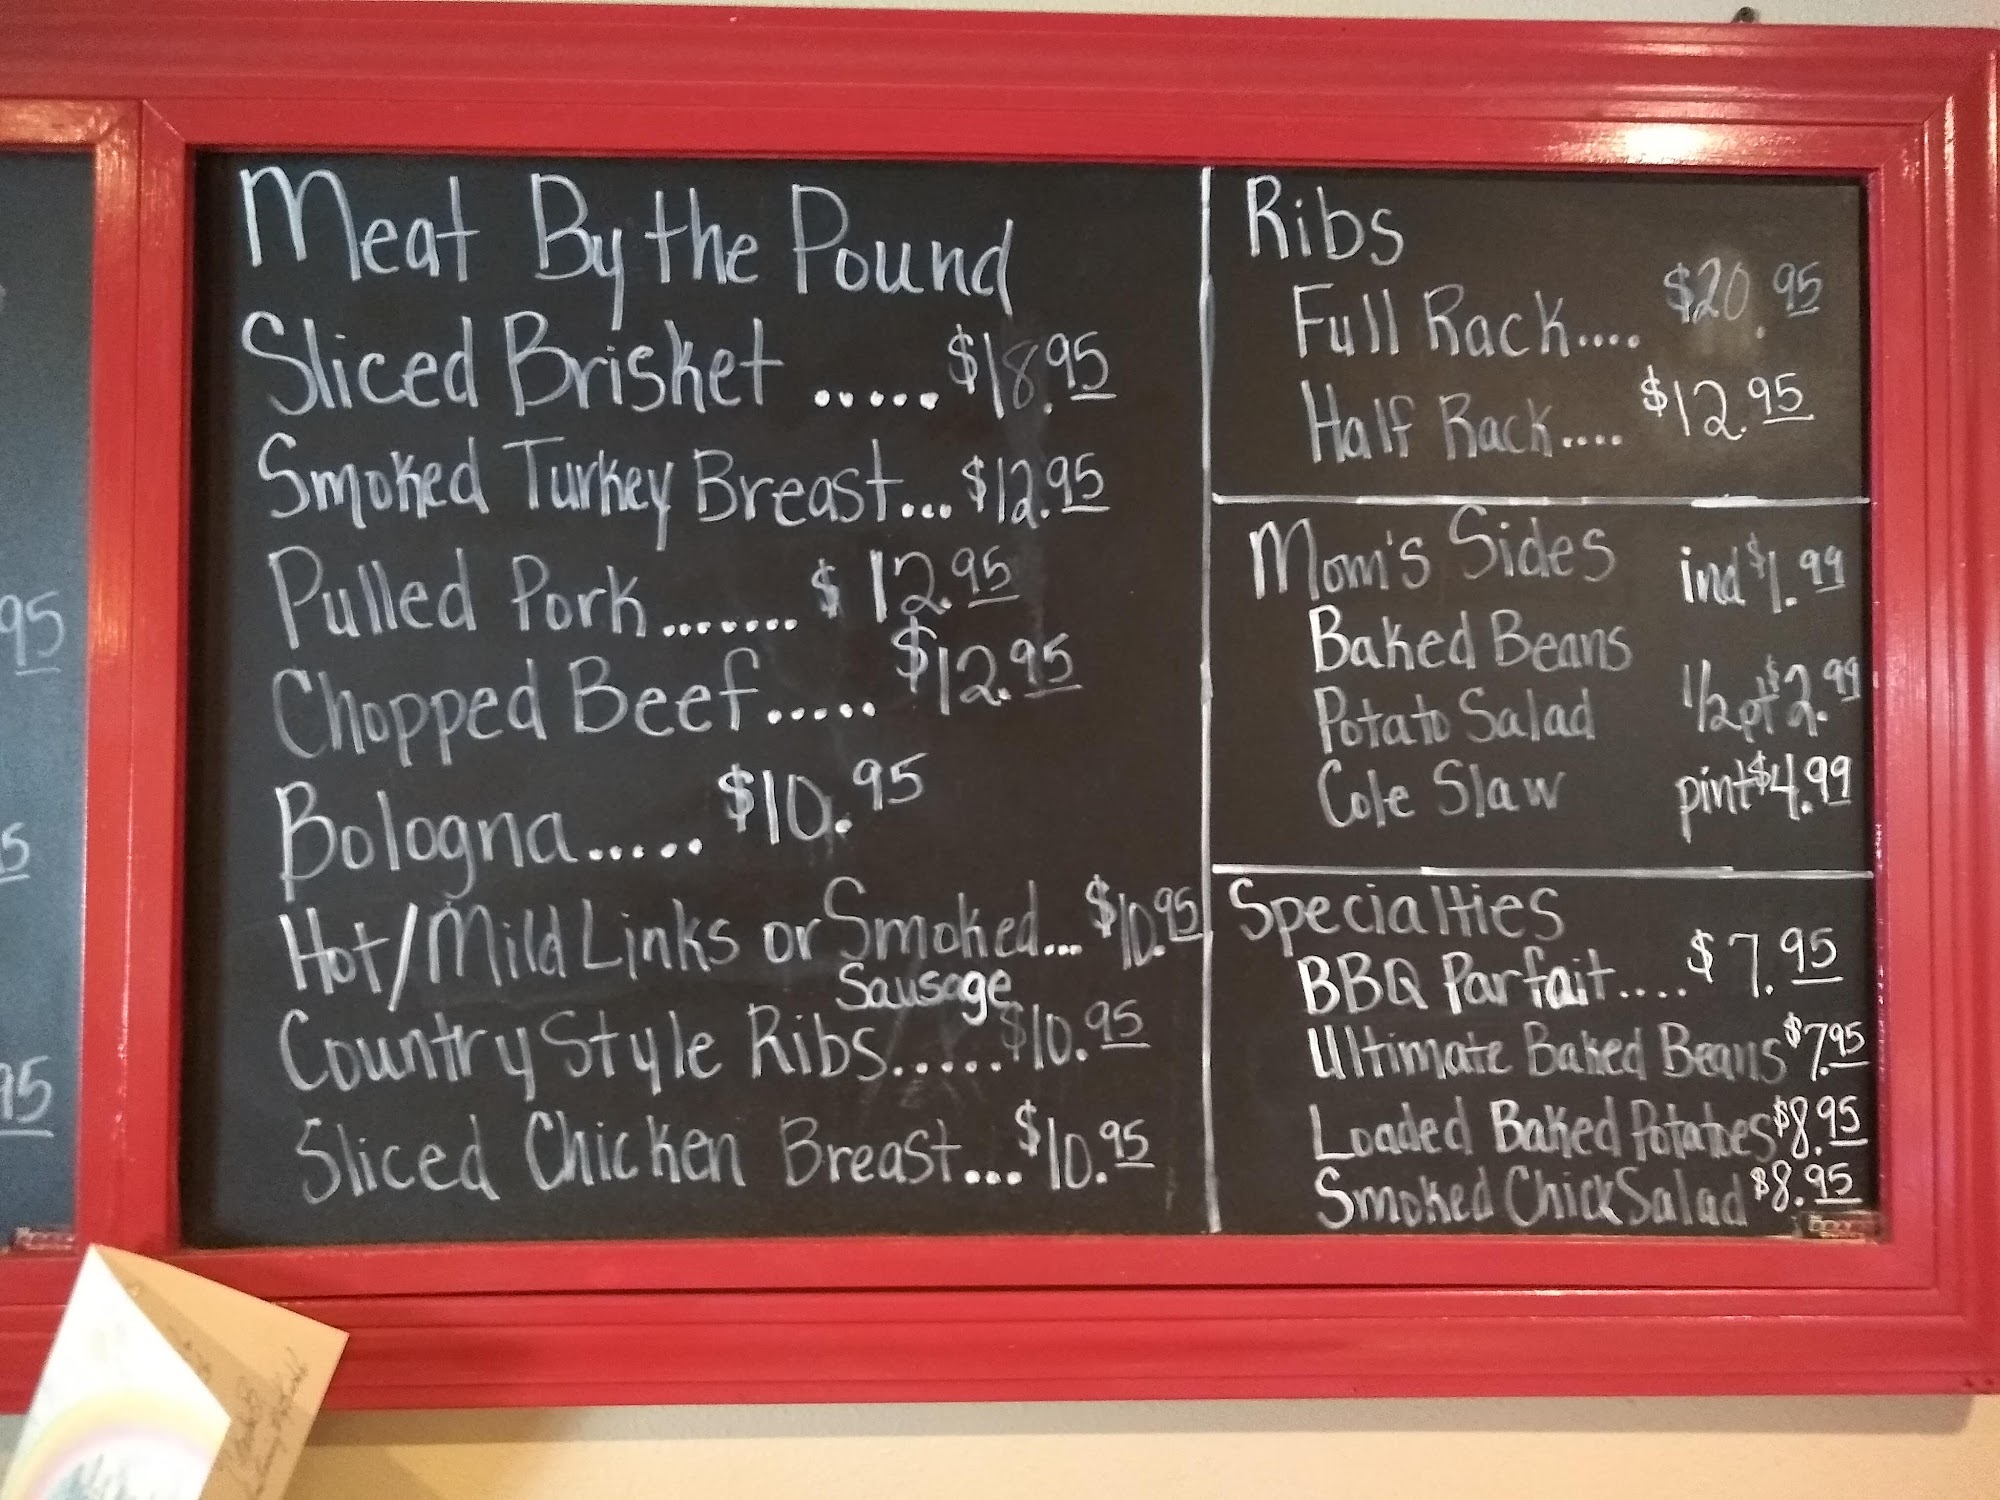 Meat By the Pound
Sliced Brisket ..... $18.95
Smoked Turkey Breast... $12.95
Pulled Pork ....... $12.95
Chopped Beef ..... $12.95
Bologna ..... $10.95
Hot/Mild Links or Smoked... $10.95
Sausage
Country Style Ribs ..... $10.95
Sliced Chicken Breast... $10.95
Ribs
Full Rack.... $20.95
Half Rack.... $12.95
Mom's Sides ind $1.99
Baked Beans
Potato Salad 1/2 pt $2.99
Cole Slaw pint $4.99
Specialties
BBQ Parfait.... $7.95
Ultimate Baked Beans $7.95
Loaded Baked Potatoes $8.95
Smoked Chick Salad $8.95
95
5
95